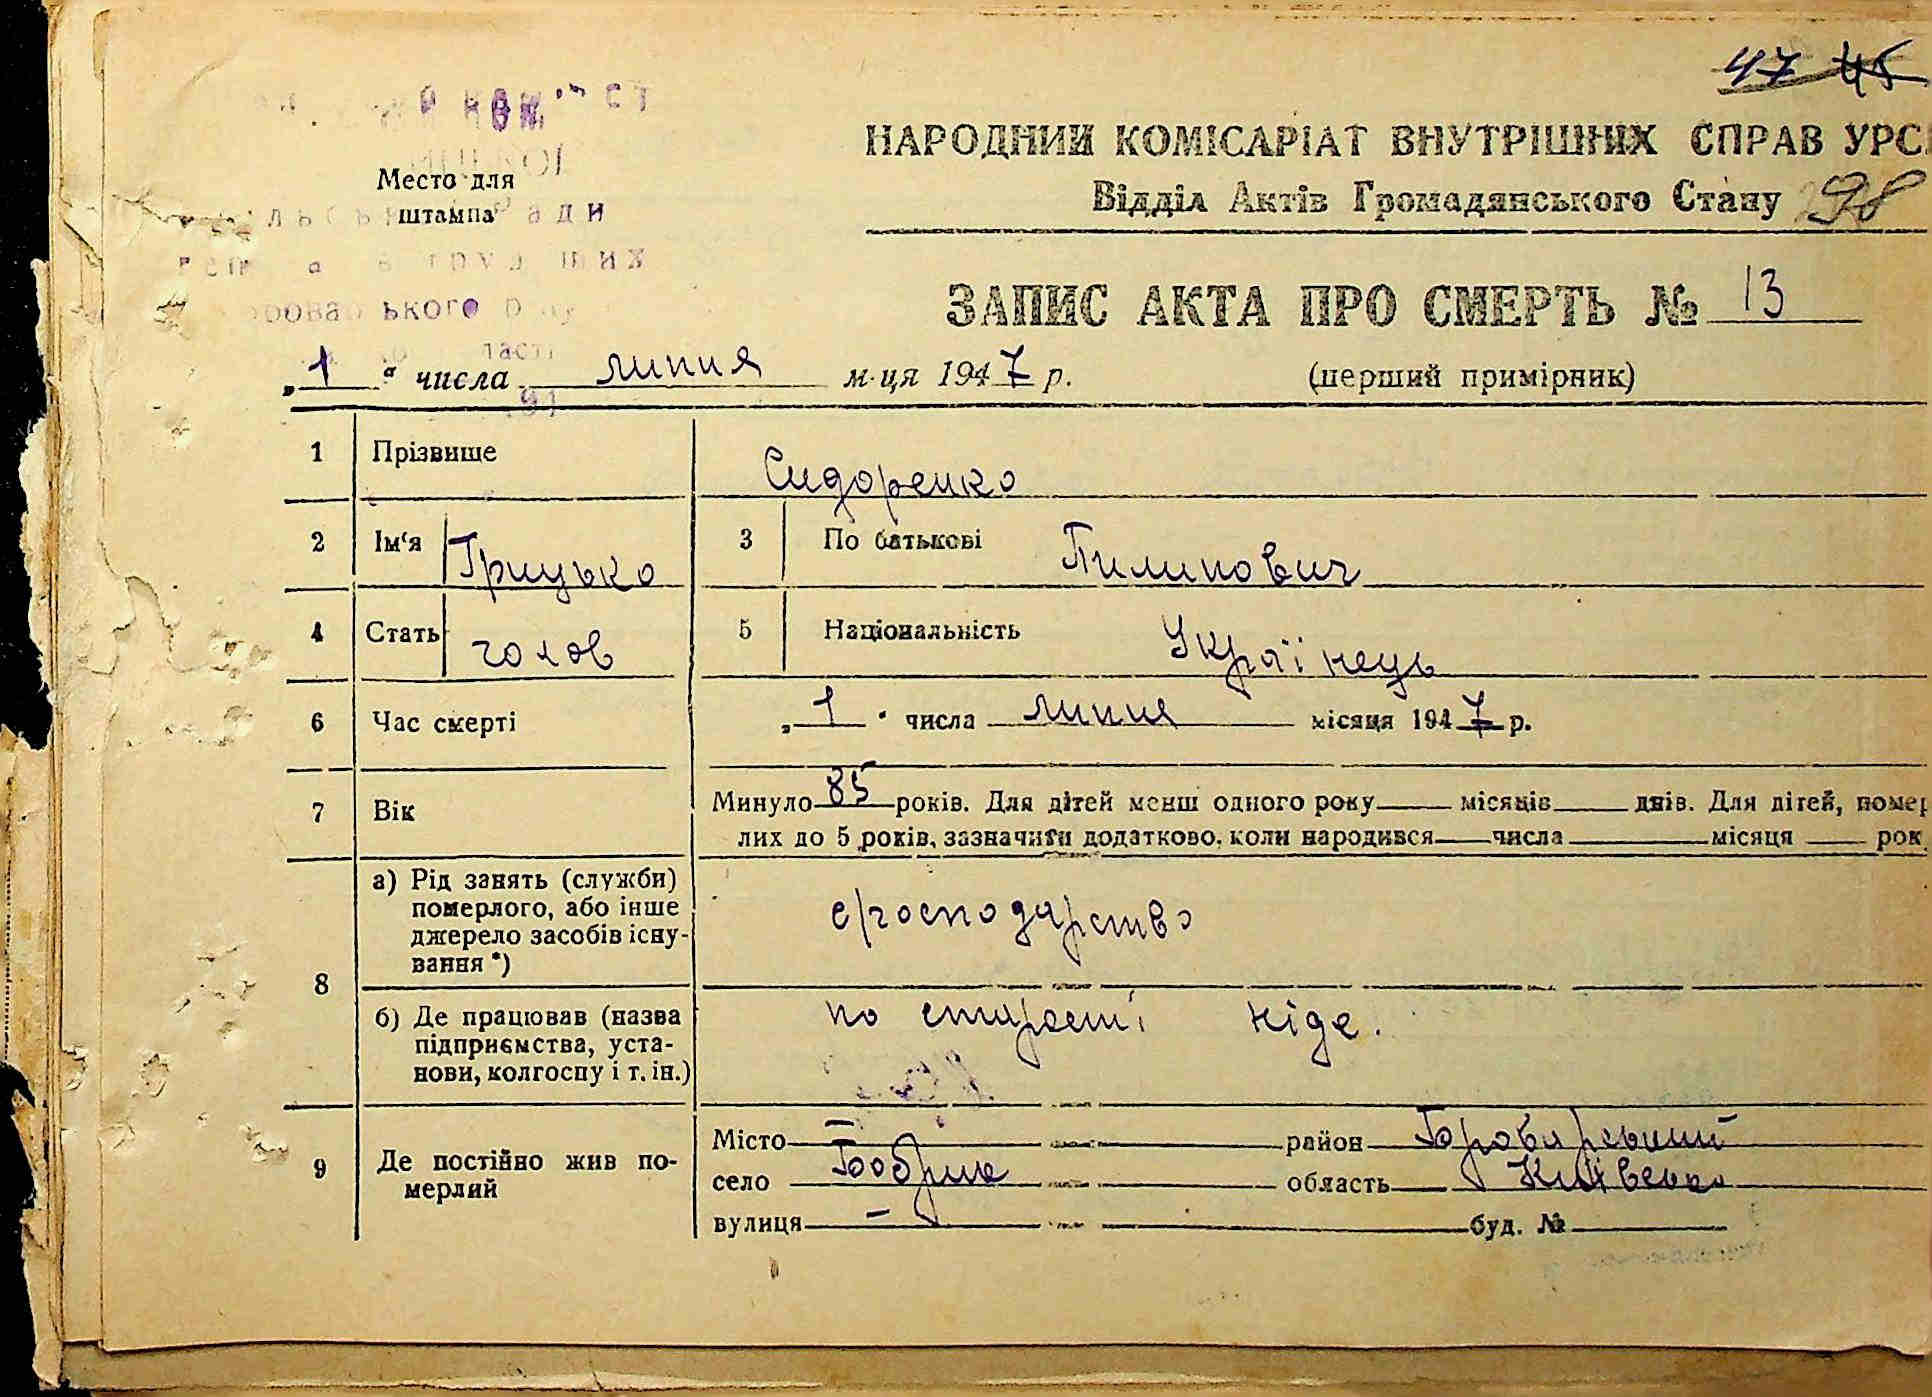 47 45
НАРОДНИЙ КОМІСАРІАТ ВНУТРІШНИХ СПРАВ УРС
Відділ Актів Громадянського Стану
298
Место для
штампа
ЗАПИС АКТА ПРО СМЕРТЬ № 13
„1“ числа липня м-ця 1947 р. (перший примірник)
1 Прізвище Сидоренко
2 Ім'я Грицько 3 По батькові Пилипович
4 Стать чолов 5 Національність Українець
6 Час смерті „1“ числа липня місяця 1947 р.
7 Вік Минуло 85 років. Для дітей менш одного року місяців днів. Для дітей, помер
лих до 5 років, зазначити додатково, коли народився числа місяця рок
8 а) Рід занять (служби)
померлого, або інше
джерело засобів існу-
вання *)
с/господарство
б) Де працював (назва
підприємства, уста-
нови, колгоспу і т. ін.)
по старості ніде.
9 Де постійно жив по-
мерлий
Місто — район Броварський
село Бобрик область Київська
вулиця — буд. №